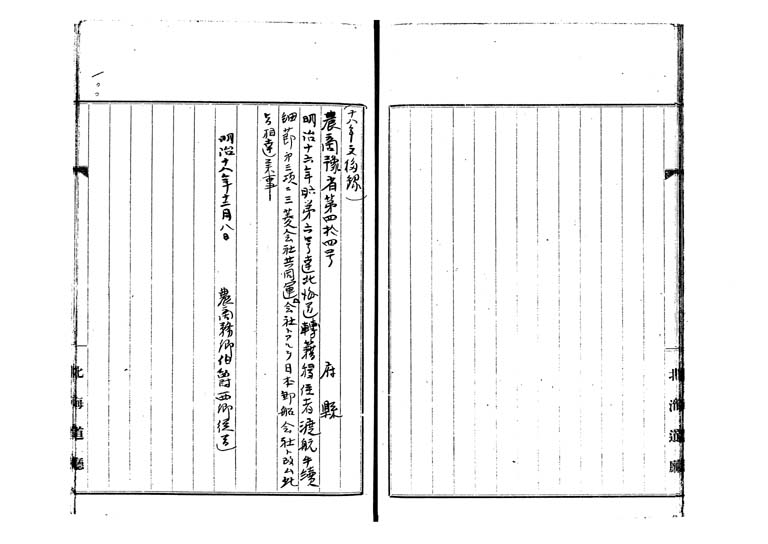 (十八年文移録)
農商務省第四拾四号 府縣
明治十六年 第六号達北海道轉籍移住者渡航手續
細節第三項ニ三菱会社共同運会社トアルヲ日本郵船会社ト改ム此
旨相達候事
明治十八年十二月八日 農商務卿伯爵西郷従道
一〇〇
北海道廳
北海道廳